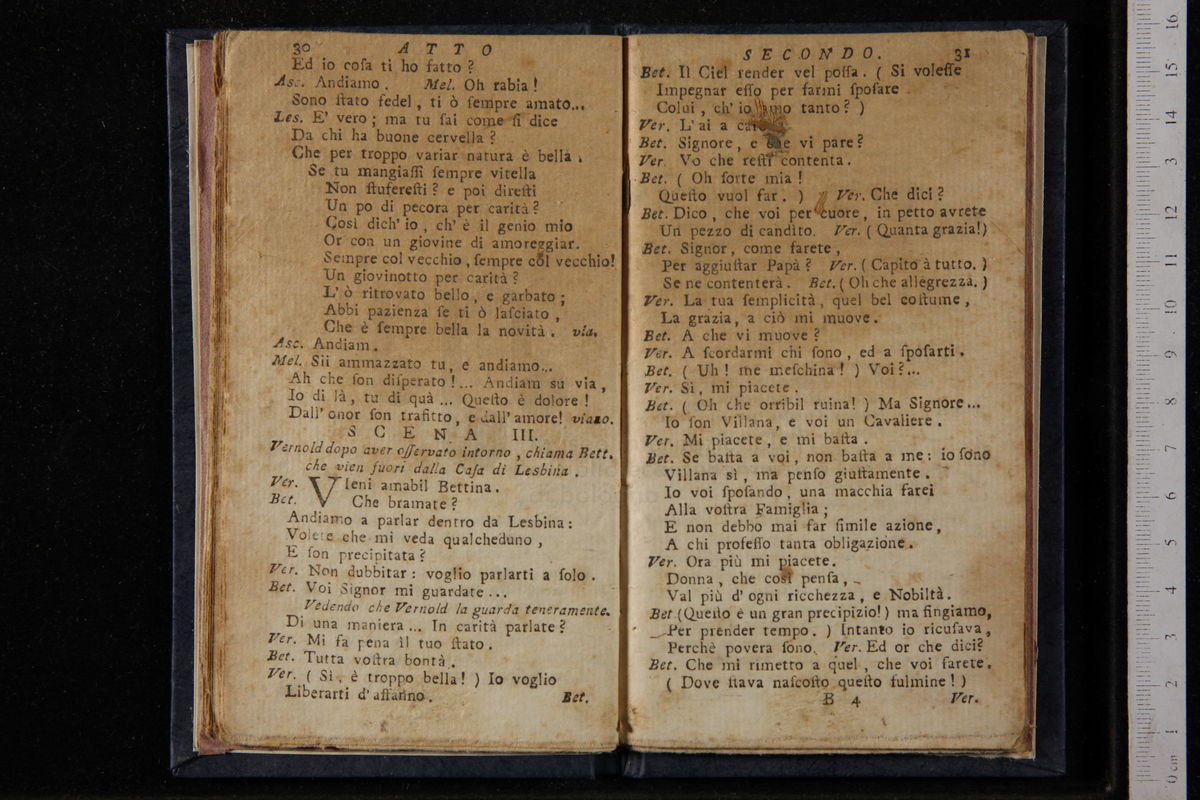 30 ATTO
Ed io coſa ti ho fatto ?
Asc. Andiamo . Mel. Oh rabia !
Sono ſtato fedel , ti ò ſempre amato...
Les. E' vero ; ma tu ſai come ſi dice
Da chi ha buone cervella ?
Che per troppo variar natura è bella .
Se tu mangiaſſi ſempre vitella
Non ſtufereſti ? e poi direſti
Un po di pecora per carità ?
Così dich' io , ch' è il genio mio
Or con un giovine di amoreggiar.
Sempre col vecchio , ſempre col vecchio!
Un giovinotto per carità ?
L' ò ritrovato bello , e garbato ;
Abbi pazienza ſe ti ò laſciato ,
Che è ſempre bella la novità . via.
Asc. Andiam .
Mel. Sii ammazzato tu , e andiamo...
Ah che ſon diſperato !... Andiam su via ,
Io di là , tu di quà ... Queſto è dolore !
Dall' onor ſon trafitto , e dall' amore! viano.
SCENA III.
Vernold dopo aver oſſervato intorno , chiama Bett.
che vien fuori dalla Caſa di Lesbina .
Ver. VIeni amabil Bettina .
Bet. Che bramate ?
Andiamo a parlar dentro da Lesbina :
Volete che mi veda qualcheduno ,
E ſon precipitata ?
Ver. Non dubbitar : voglio parlarti a ſolo .
Bet. Voi Signor mi guardate ...
Vedendo che Vernold la guarda teneramente.
Di una maniera ... In carità parlate ?
Ver. Mi fa pena il tuo ſtato .
Bet. Tutta voſtra bontà .
Ver. ( Sì , è troppo bella ! ) Io voglio
Liberarti d' affanno . Bet.
SECONDO. 31
Bet. Il Ciel render vel poſſa . ( Si voleſſe
Impegnar eſſo per farmi ſpoſare
Colui , ch' io amo tanto ? )
Ver. L' ai a
Bet. Signore , e che vi pare ?
Ver. Vo che reſti contenta .
Bet. ( Oh ſorte mia !
Queſto vuol far . ) Ver. Che dici ?
Bet. Dico , che voi per cuore , in petto avrete
Un pezzo di candito. Ver. ( Quanta grazia!)
Bet. Signor , come farete ,
Per aggiuſtar Papà ? Ver. ( Capito à tutto. )
Se ne contenterà . Bet. ( Oh che allegrezza. )
Ver. La tua ſemplicità , quel bel coſtume ,
La grazia , a ciò mi muove .
Bet. A che vi muove ?
Ver. A ſcordarmi chi ſono , ed a ſpoſarti .
Bet. ( Uh ! me meſchina ! ) Voi ?...
Ver. Sì , mi piacete .
Bet. ( Oh che orribil ruina! ) Ma Signore...
Io ſon Villana , e voi un Cavaliere .
Ver. Mi piacete , e mi baſta .
Bet. Se baſta a voi , non baſta a me : io ſono
Villana sì , ma penſo giuſtamente .
Io voi ſpoſando , una macchia farei
Alla voſtra Famiglia ;
E non debbo mai far ſimile azione ,
A chi profeſſo tanta obligazione .
Ver. Ora più mi piacete.
Donna , che così penſa ,
Val più d' ogni ricchezza , e Nobiltà .
Bet. (Queſto è un gran precipizio!) ma fingiamo,
Per prender tempo . ) Intanto io ricuſava ,
Perchè povera ſono. Ver. Ed or che dici?
Bet. Che mi rimetto a quel , che voi farete .
( Dove ſtava naſcoſto queſto fulmine ! )
B 4 Ver.
0 cm 1 2 3 4 5 6 7 8 9 10 11 12 13 14 15 16